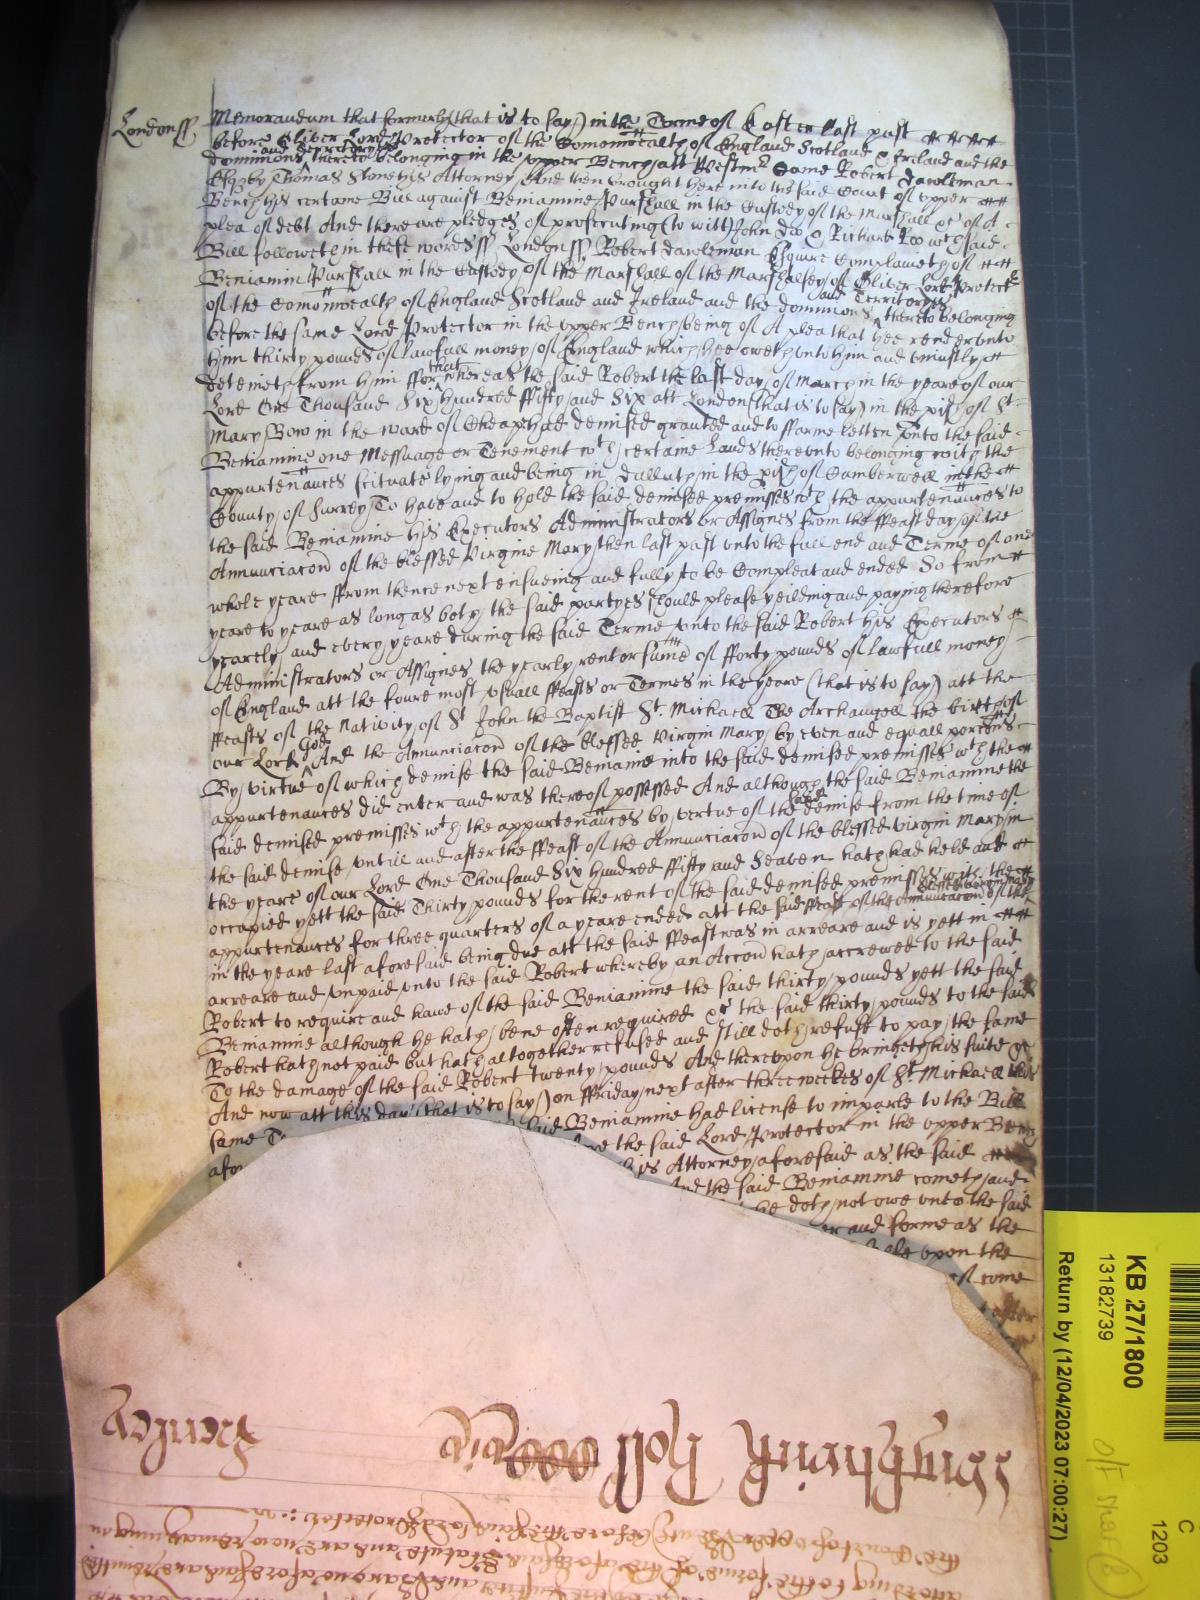 London ss
Memorandum that formerly (that is to say) in the Terme of Easter last past
before Oliver Lord Protector of the Comonwealth of England Scotland & Ireland and the
and Territoryes
dominions thereto belonging in the upper Bench att Westmr Came Robert Dawleman
Esqr by Thomas Stone his Attorney And then brought here into the said Court of upper
Bench his certaine Bill against Beniamine Purshall in the Custody of the Marshall &c of A
plea of debt And there are pledges of prosecuting (to witt) John Doo & Richard Roo wch said
Bill followeth in these words ss London ss Robert Dawleman Esquire Complaineth of
Beniamin Purshall in the Custody of the Marshall of the Marshalsey of Oliver Lord Protector
of the Comonwealth of England Scotland and Ireland and the dominions and Territoryes thereto belonging
before the same Lord Protector in the upper Bench being of A plea that hee render unto
him thirty pounds of lawfull money of England which hee oweth unto him and uniustly
deteineth from him ffor that whereas the said Robert the last day of March in the yeare of our
Lord One Thousand Six hundred ffifty and Six att London (that is to say) in the pish of St
Mary Bow in the ward of Cheap had demised granted and to ffarme letten unto the said
Beniamine one Messuage or Tenement wth certaine Lands thereunto belonging with the
appurtenances scituate lying and being in Dullwich in the pish of Camberwell in the
County of Surrey To have and to hold the said demised premisses wth the appurtenances to
the said Beniamine his Executors Administrators or Assignes from the ffeast day of the
Annunciacon of the blessed Virgine Mary then last past unto the full end and Terme of one
whole yeare ffrom thence next ensueing and fully to be Compleat and ended So from
yeare to yeare as long as both the said partyes should please yeilding and paying therefore
yearely and every yeare during the said Terme unto the said Robert his Executors
Administrators or Assignes the yearly rent or sume of fforty pounds of lawfull money
of England att the foure most usuall ffeasts or Termes in the yeare (that is to say) att the
ffeasts of the Nativity of St John the Baptist St. Michaell The Archangell the birth of
our Lord God And the Annunciacon of the blessed Virgin Mary by even and equall porcons
By virtue of which demise the said Beniamine into the said demised premisses wth the
appurtenances did enter and was thereof possessed And although the said Beniamine the
said demised premisses wth the appurtenances by vertue of the said demise from the time of
the said demise untill and after the ffeast of the Annunciacon of the blessed Virgin Mary in
the yeare of our Lord One Thousand Six hundred ffifty and Seaven hath had held and
occupied yett the said Thirty pounds for the rent of the said demised premisses with the
appurtenances for three quarters of a yeare ended att the said ffeast of the Annunciacon of the
in the yeare last aforesaid being due att the said ffeast was in arreare and is yett in
arreare and unpaid unto the said Robert whereby an Accon hath accrewed to the said
Robert to require and have of the said Beniamine the said thirty pounds yett the said
Beniamine although he hath bene often required &c the said thirty pounds to the said
Robert hath not paid but hath altogether refused and still doth refuse to pay the same
To the damage of the said Robert Twenty pounds And thereupon he bringeth his suite &c
And now att this day (that is to say) on ffriday next after three weekes of St Michaell this
same said Beniamine had license to imparle to the Bill
afor the said Lord Protector in the upper Bench
his Attorney aforesaid as the said
And the said Beniamine cometh and
he doth not owe unto the said
and forme as the
upon the
come
after
Roll
the Court of upper Bench before the said Lord Protector
according to the forme of the aforesaid Statute and are now remayning in
KB 27/1800
13182739
Return by (12/04/2023 07:00:27)
C
1203